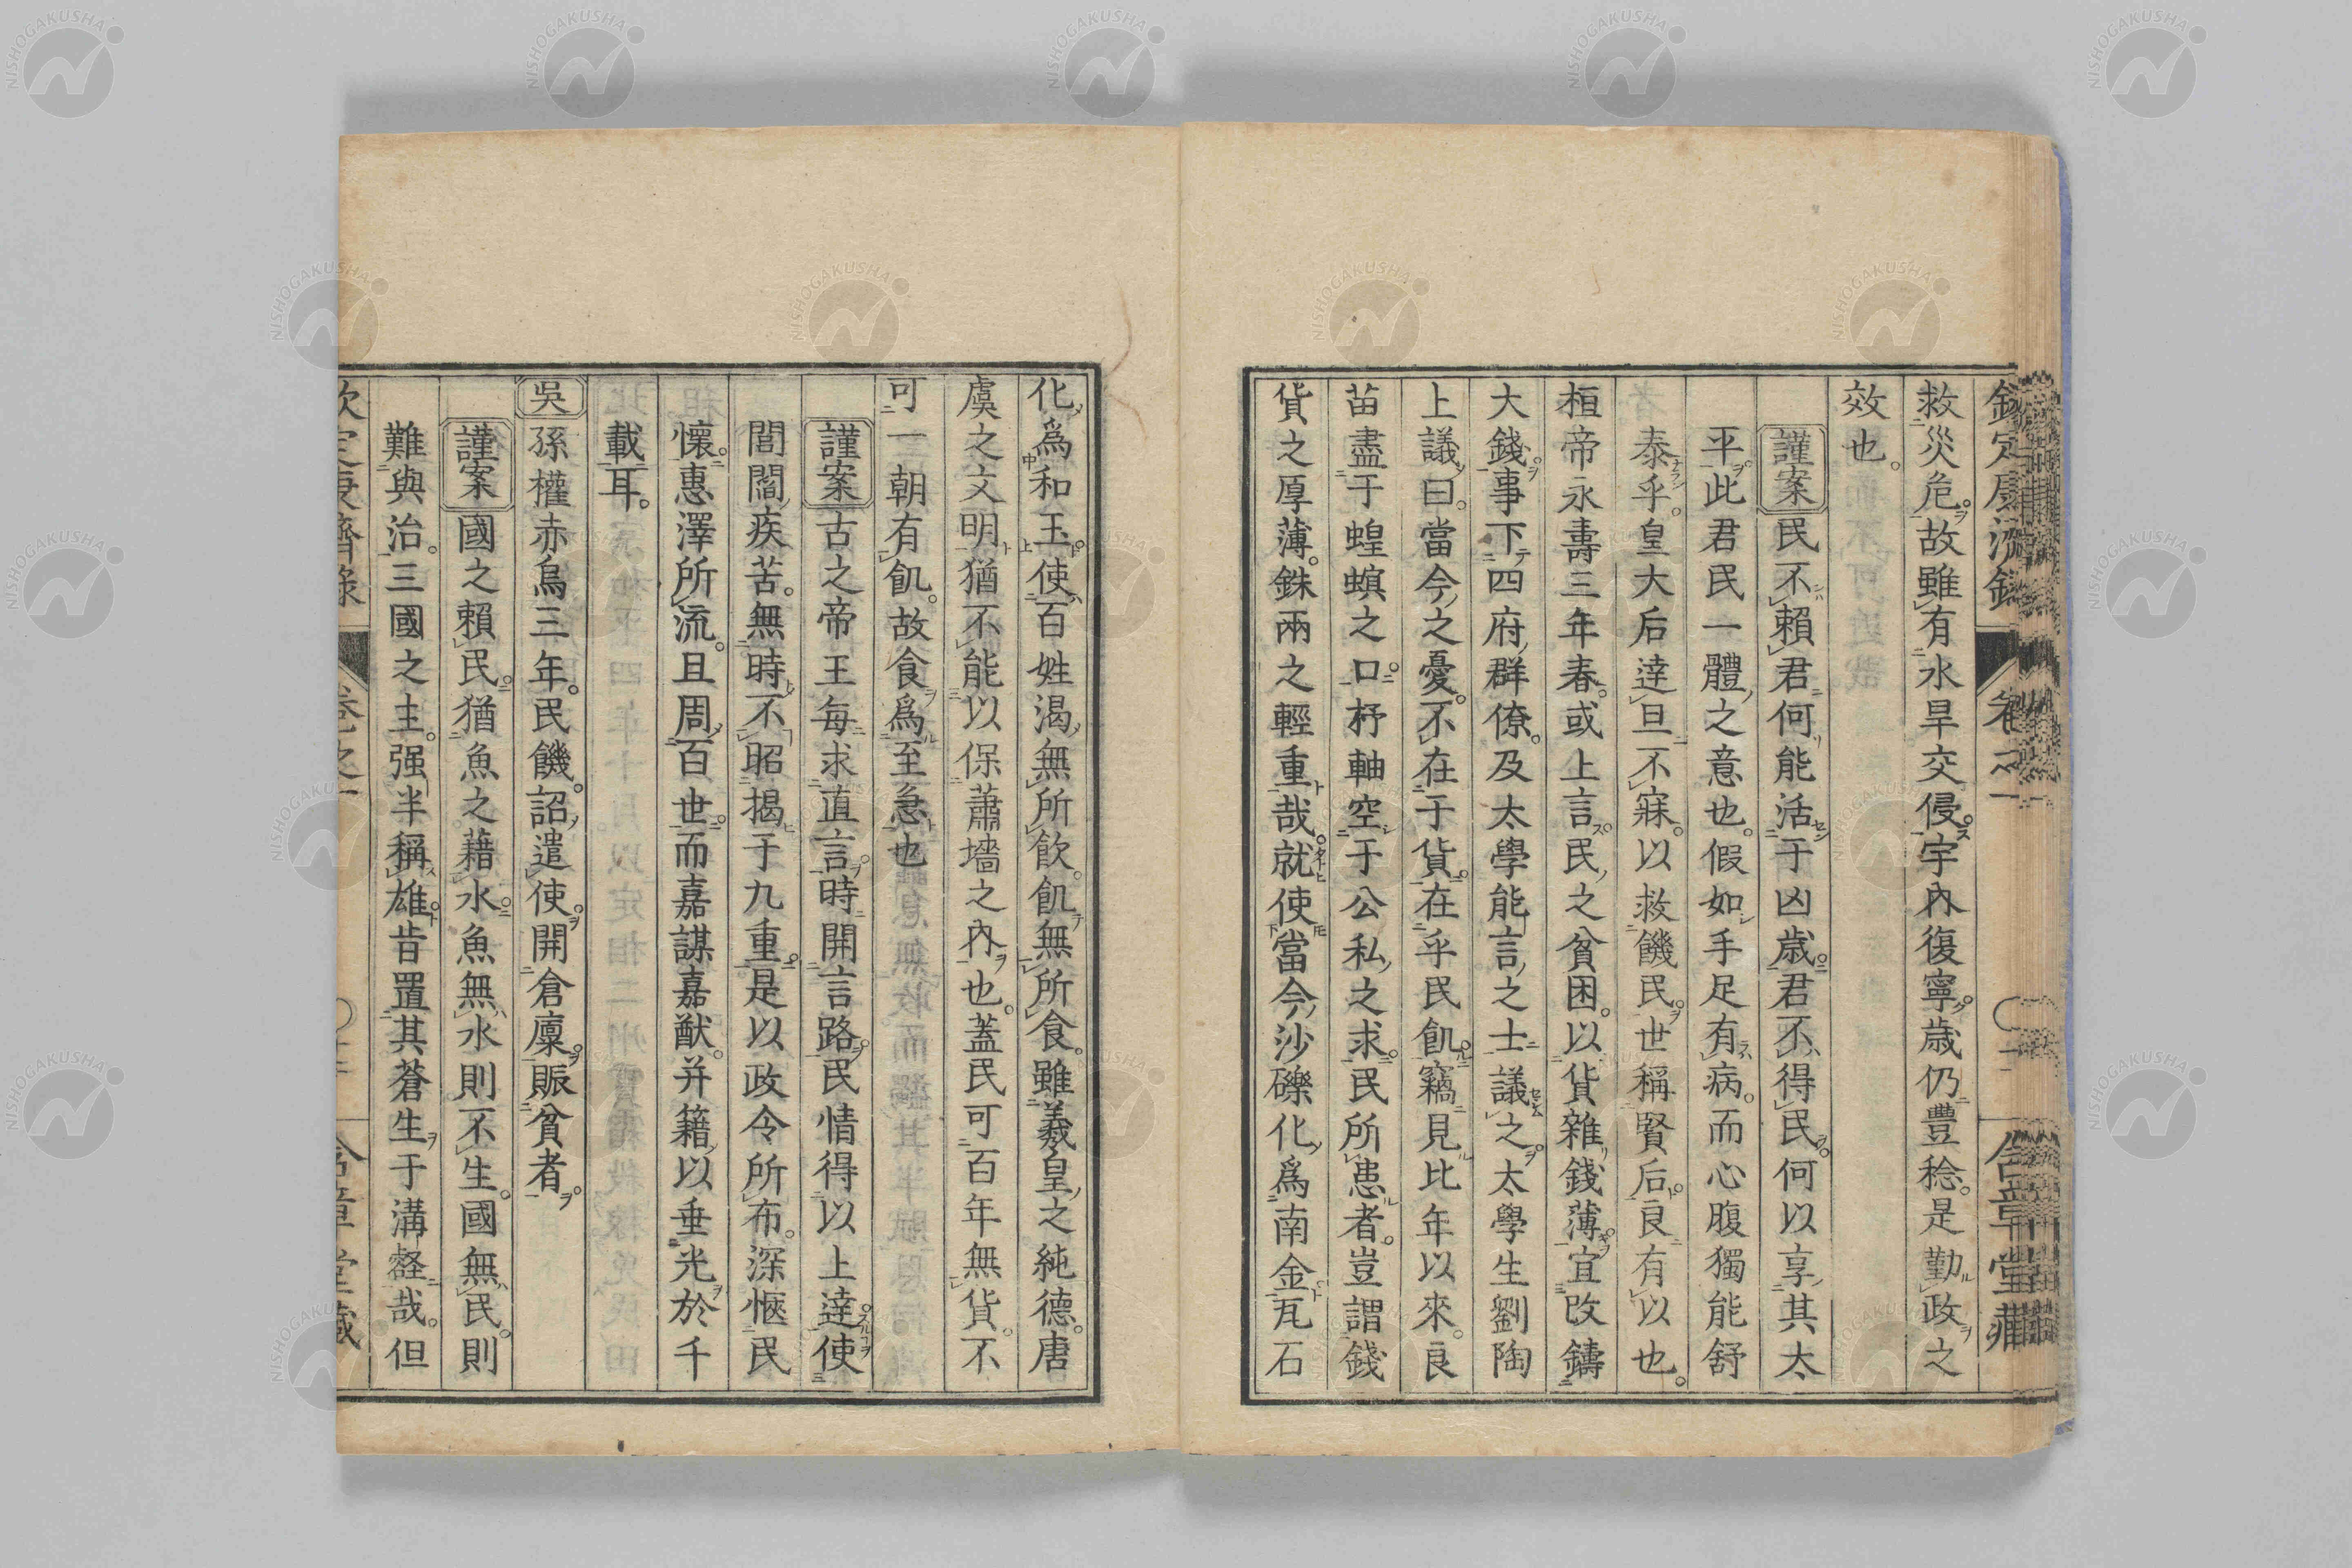 救災危。故雖有水旱交侵。宇內復寧。歲仍豐稔。是勤政之
效也。
謹案民不賴君何能活于凶歲。君不得民。何以享其太
平。此君民一體之意也。假如手足有病。而心腹獨能舒
泰乎。皇大后達旦不寐。以救饑民。世稱賢后。良有以也。
桓帝永壽三年春。或上言。民之貧困。以貨雜錢薄。宜改鑄
大錢。事下四府群僚。及太學能言之士議之。太學生劉陶
上議曰。當今之憂。不在于貨。在乎民飢。竊見比年以來。良
苗盡于蝗螟之口。杼軸空于公私之求。民所患者。豈謂錢
貨之厚薄。銖兩之輕重哉。就使當今沙礫化爲南金。瓦石
化爲和玉。使百姓渴無所飲。飢無所食。雖羲皇之純德。唐
虞之文明。猶不能以保蕭墻之內也。蓋民可百年無貨。不
可一朝有飢。故食爲至急也
謹案古之帝王每求直言。時開言路。民情得以上達。使
閭閻疾苦。無時不昭揭于九重。是以政令所布。深愜民
懷。惠澤所流。且周百世。而嘉謀嘉猷。并籍以垂光於千
載耳。
吳 孫權赤烏三年。民饑。詔遣使。開倉廩。賑貧者。
謹案國之賴民。猶魚之藉水。魚無水則不生。國無民。則
難與治。三國之主。强半稱雄。昔置其蒼生于溝壑哉。但